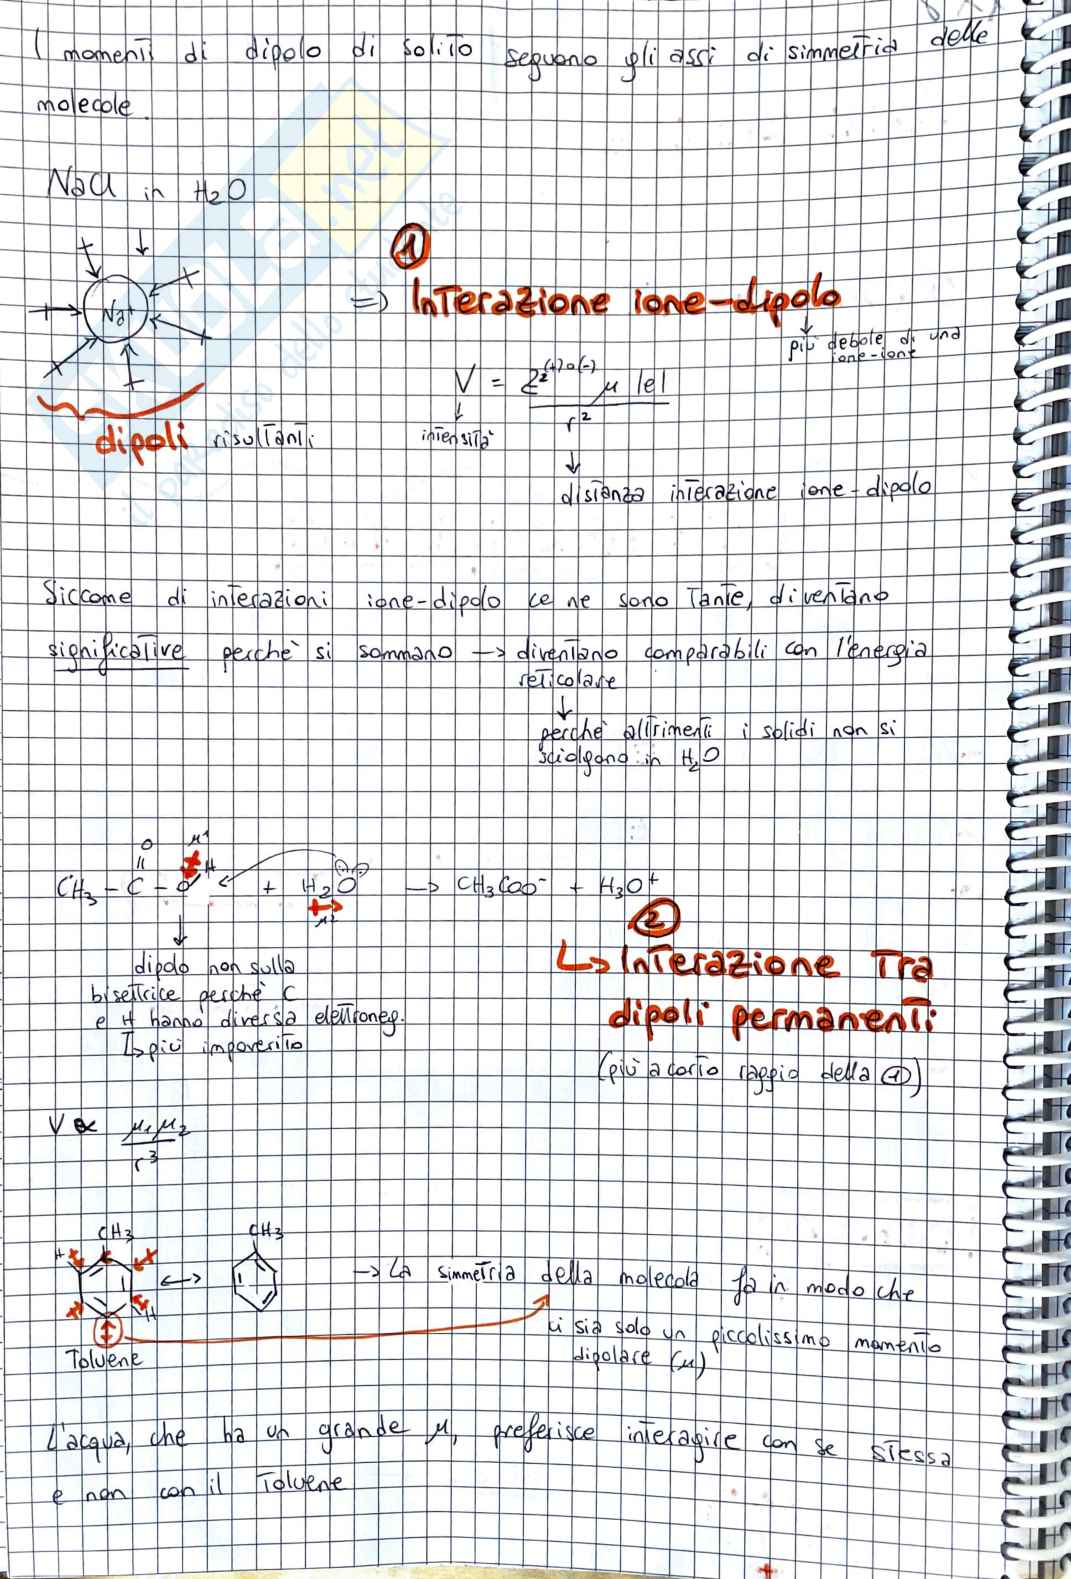 I momenti di dipolo di solito seguono gli assi di simmetria delle
molecole.
NaCl in H₂O
Na⁺
dipoli risultanti
①
=> Interazione ione-dipolo
↓
più debole di una
ione-ione
V = z⁽⁺⁾ᵒ⁽⁻⁾ μ |e|
r²
↓
intensità
↓
distanza interazione ione-dipolo
Siccome di interazioni ione-dipolo ce ne sono tante, diventano
significative perchè si sommano → diventano comparabili con l'energia
reticolare
↓
perchè altrimenti i solidi non si
sciolgono in H₂O
O μ¹
CH₃ - C - O H + H₂O → CH₃COO⁻ + H₃O⁺
μ²
↓
dipolo non sulla
bisettrice perchè C
e H hanno diversa elettroneg.
↳ più impoverito
②
↳ Interazione tra
dipoli permanenti
(più a corto raggio della ①)
V ∝ μ₁μ₂
r³
CH₃ CH₃
H
H
Toluene
→ La simmetria della molecola fa in modo che
ci sia solo un piccolissimo momento
dipolare (μ)
L'acqua, che ha un grande μ, preferisce interagire con se stessa
e non con il Toluene
.net
il paradiso dello studente